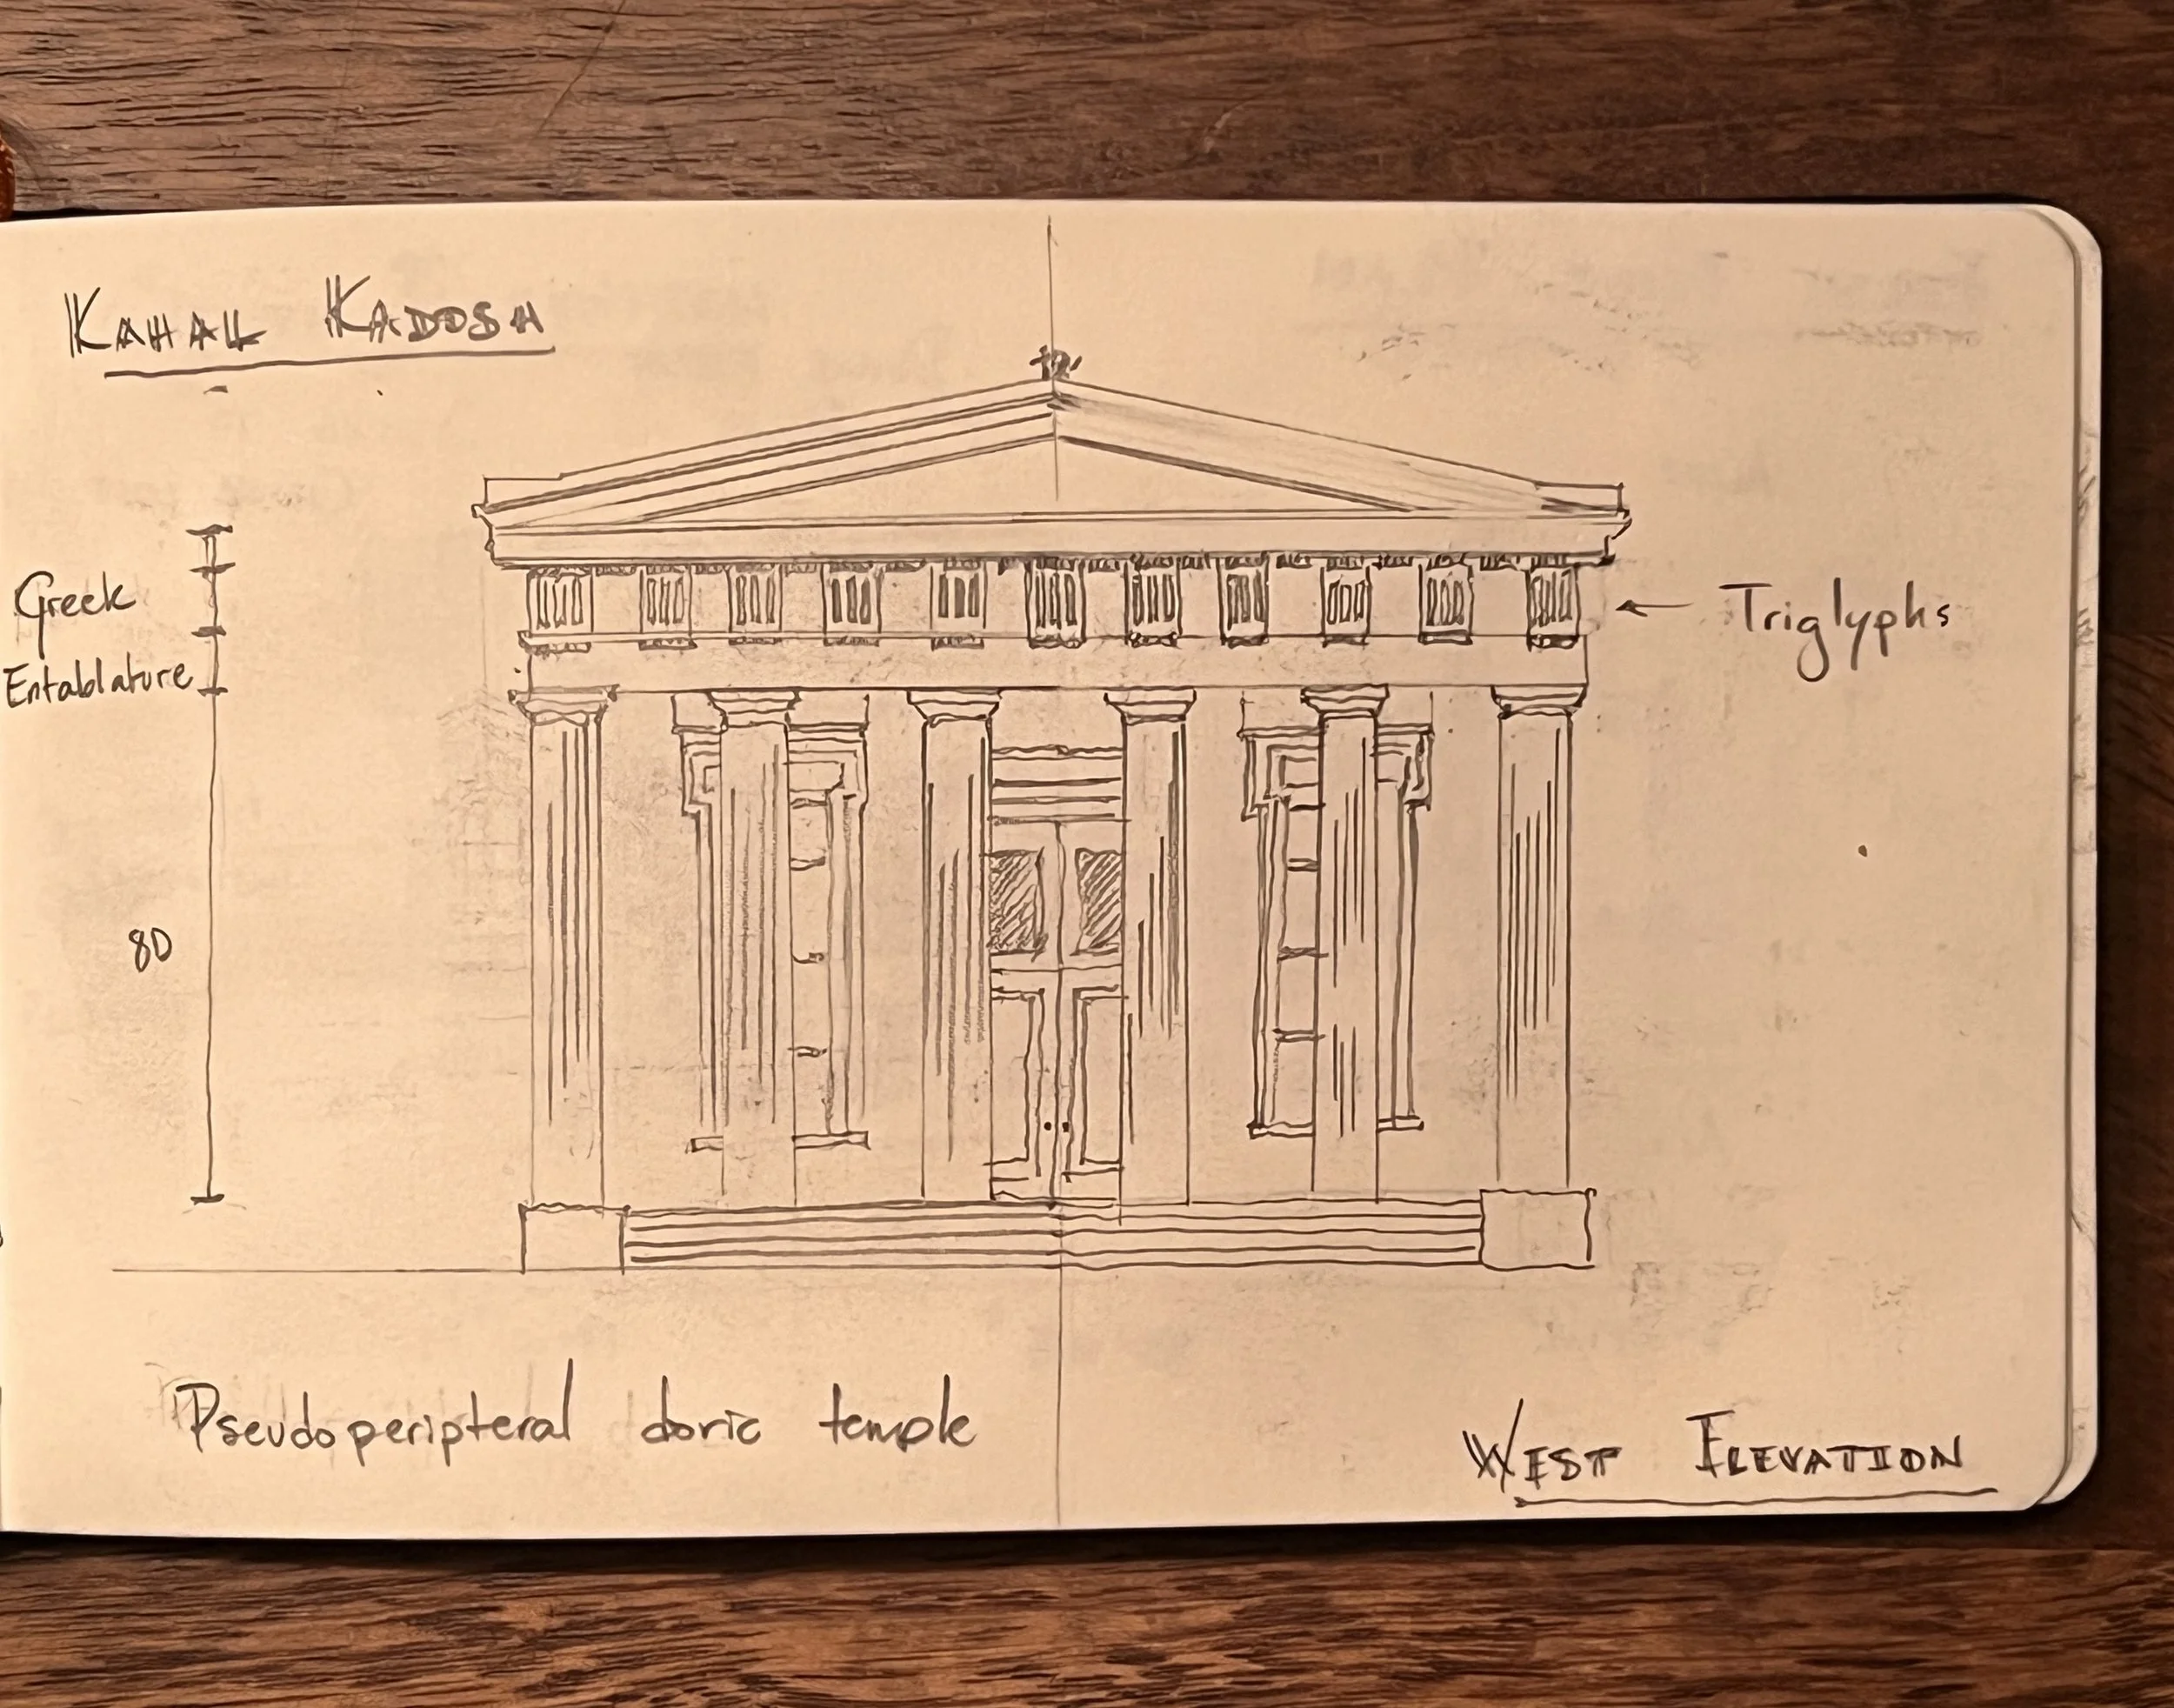 KAHAL KADOSH
Greek
Entablature
Triglyphs
8D
Pseudoperipteral doric temple
WEST ELEVATION